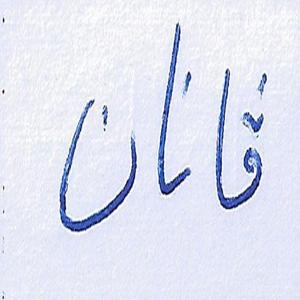 فانان